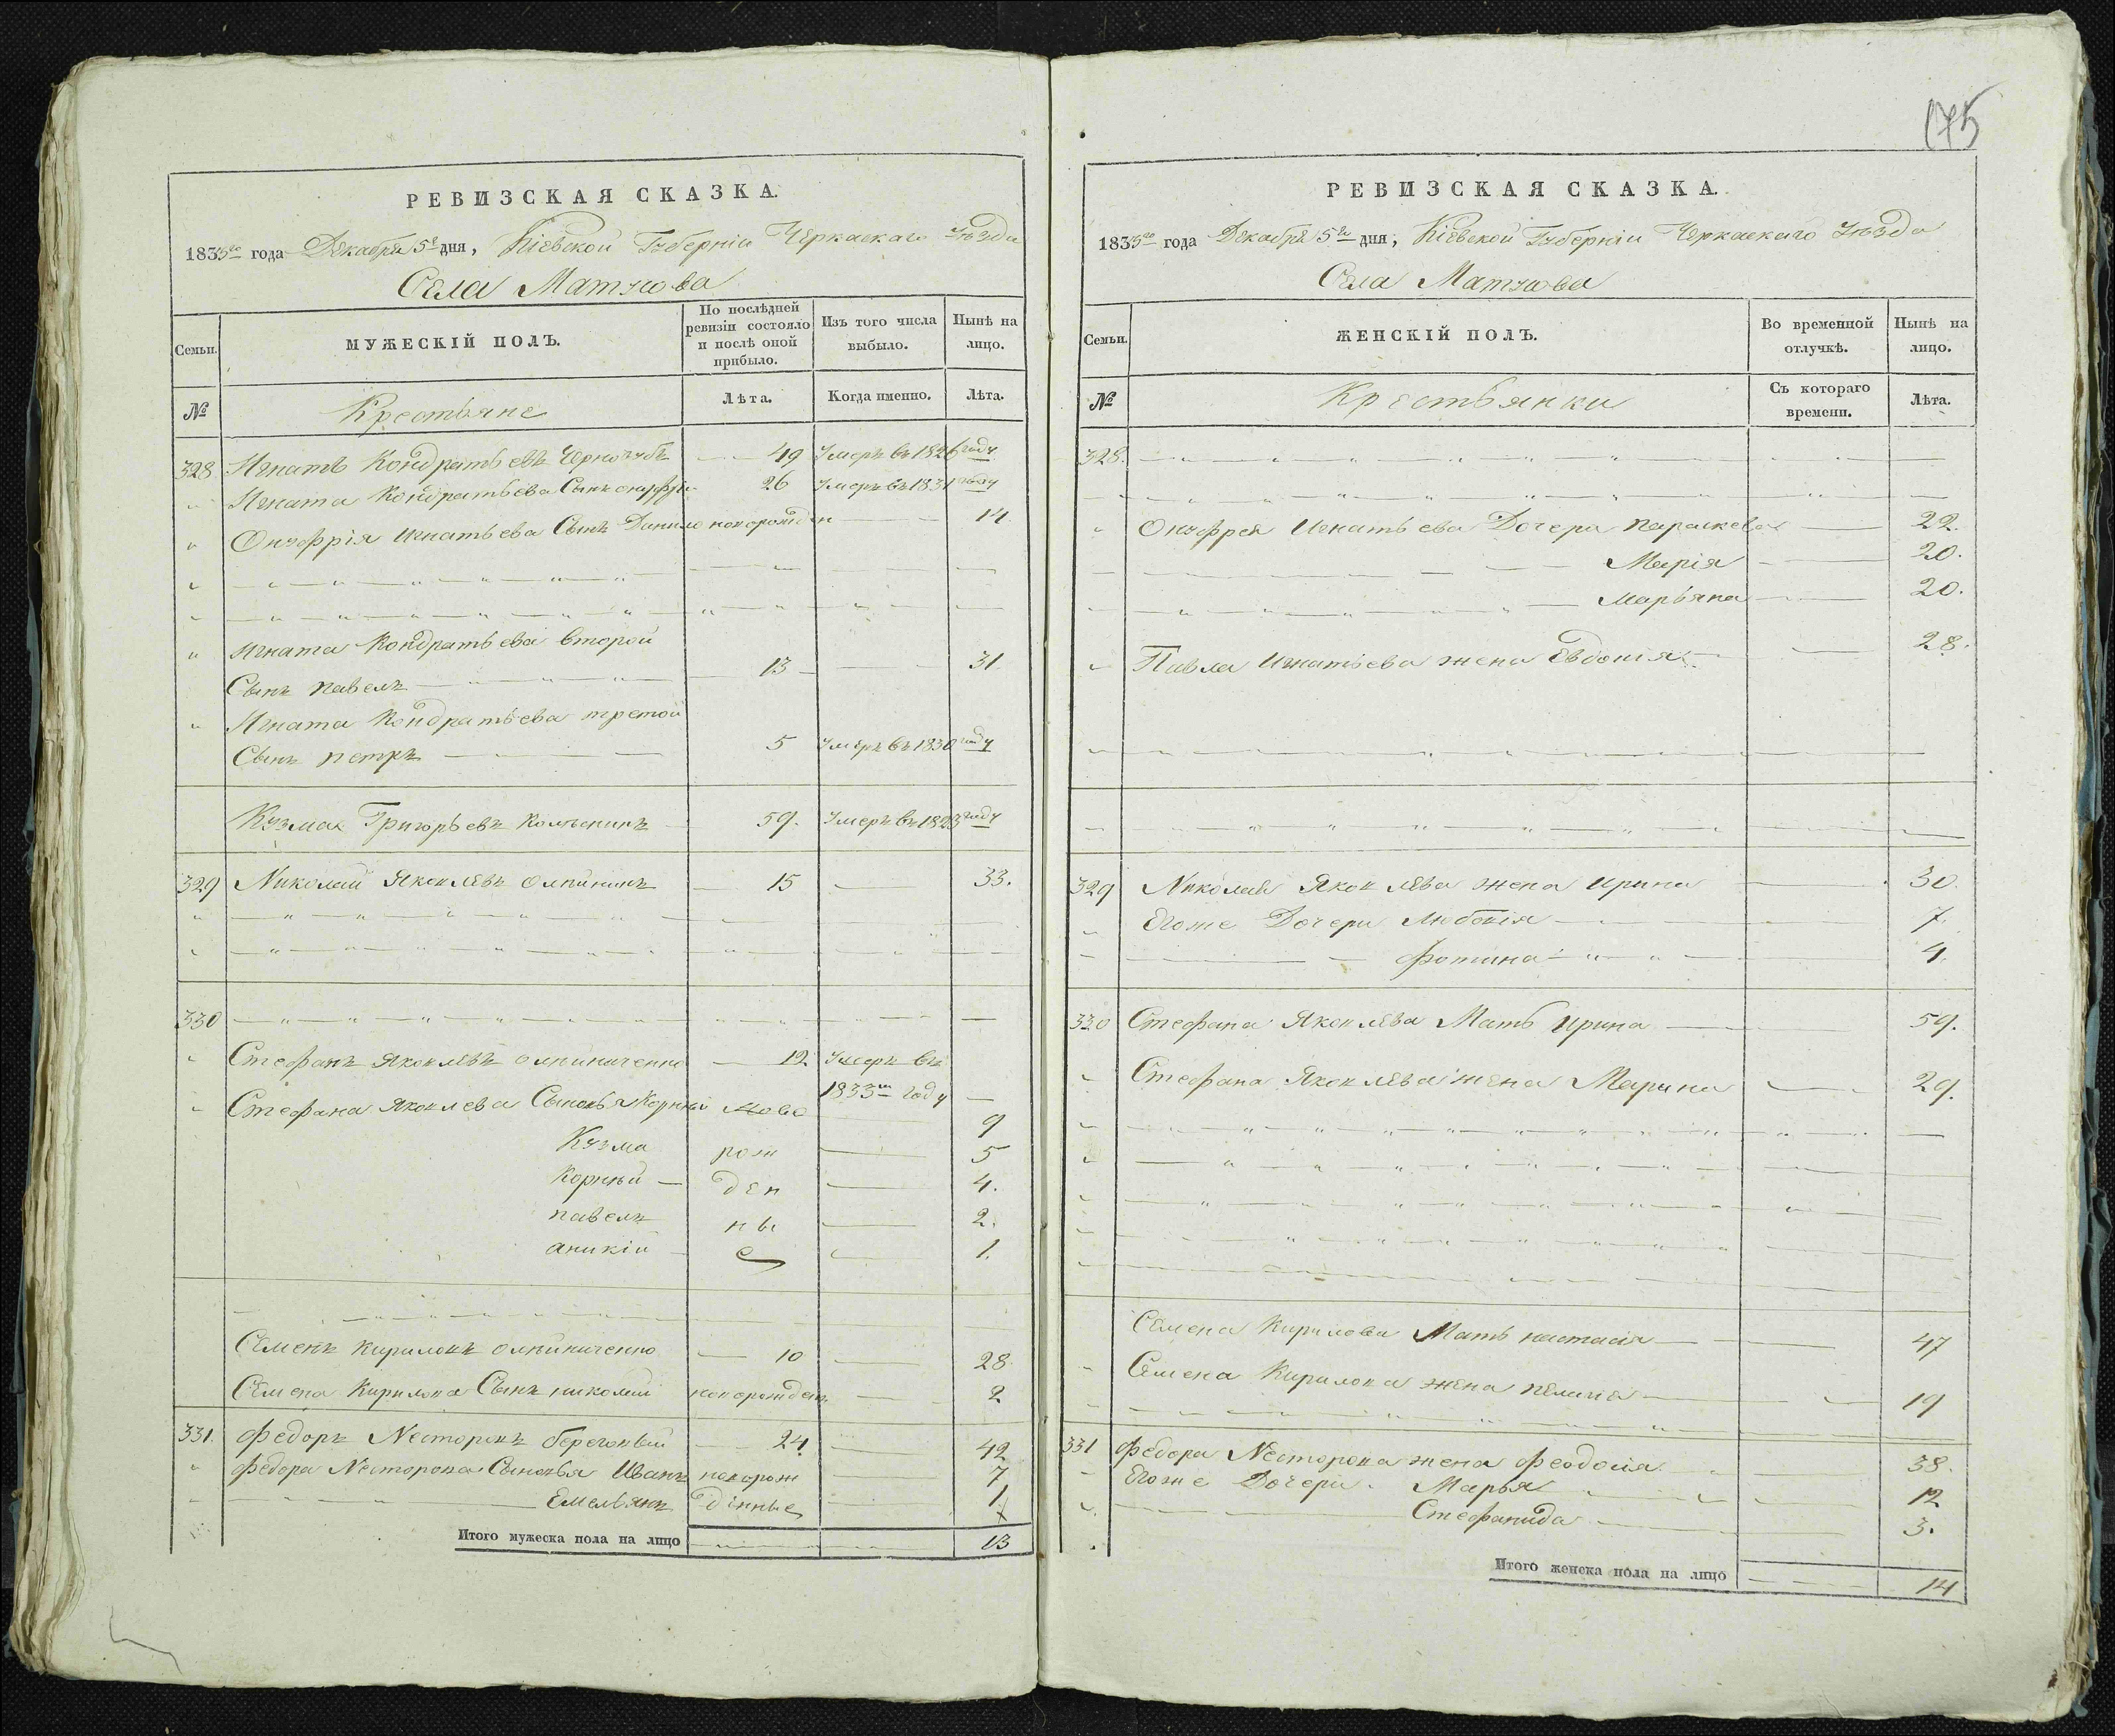 175
РЕВИЗСКАЯ СКАЗКА.
1835го года Декабря 5го дня, Кіевской Губерніи Черкаскаго Уѣзда
Села Матусова
Семьи.
МУЖЕСКІЙ ПОЛЪ.
По послѣдней ревизіи состояло и послѣ оной прибыло.
Изъ того числа выбыло.
Нынѣ на лицо.
№
Крестьяне
Лѣта.
Когда именно.
Лѣта.
328 Игнатъ Кондратьевъ Чорночубъ 49 Умеръ въ 1826 году
" Игната Кондратьева Сынъ 26 Умеръ въ 1831 году
" Онуфрія Игнатьева Сынъ Данило новорожден 14
" Игната Кондратьева второй
Сынъ павелъ 13 31
" Игната Кондратьева третой
Сынъ петръ 5 Умеръ въ 1830 году
Кузма Григорьевъ 59. Умеръ въ 1823 году
329 Николай Яковлевъ 15 33.
330
" Стефанъ Яковлевъ 12 Умеръ въ
1833м году
" Стефана Яковлева Сыновья Корній ново 9
Кузма рож 5
Корній ден 4.
павелъ ны 2.
аникій е 1.
Семенъ Кириловъ 10 28
Семена Кирилова Сынъ николай новорожден 2
331. Федоръ Несторовъ береговый 24 42
" Федора Несторова Сыновья Иванъ новорож 7
Емельянъ дінные 1
Итого мужеска пола на лицо 13
РЕВИЗСКАЯ СКАЗКА.
1835го года Декабря 5го дня, Кіевской Губерніи Черкаскаго Уѣзда
Села Матусова
Семьи.
ЖЕНСКІЙ ПОЛЪ.
Во временной отлучкѣ.
Нынѣ на лицо.
№
Крестьянки
Съ котораго времени.
Лѣта.
328.
" Онуфрея Игнатьева Дочери параскева 22.
Марія 20.
Марьяна 20.
" Павла Игнатьева жена Евдокія 28.
329 Николая Яковлева жена Ирина 30
" Егоже Дочери 7.
Фотина 4.
330 Стефана Яковлева Мать Ирина 59.
" Стефана Яковлева жена Марина 29.
Семена Кирилова Мать настасія 47
" Семена Кирилова жена 19
331 Федора Несторова жена Феодосія 38.
" Егоже Дочери Марья 12
Стефанида 3.
Итого женска пола на лицо 14